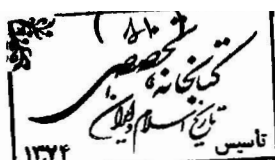 (۸۱۰)
کتابخانه تخصصی
تاریخ اسلام و ایران
تأسیس ۱۳۷۴